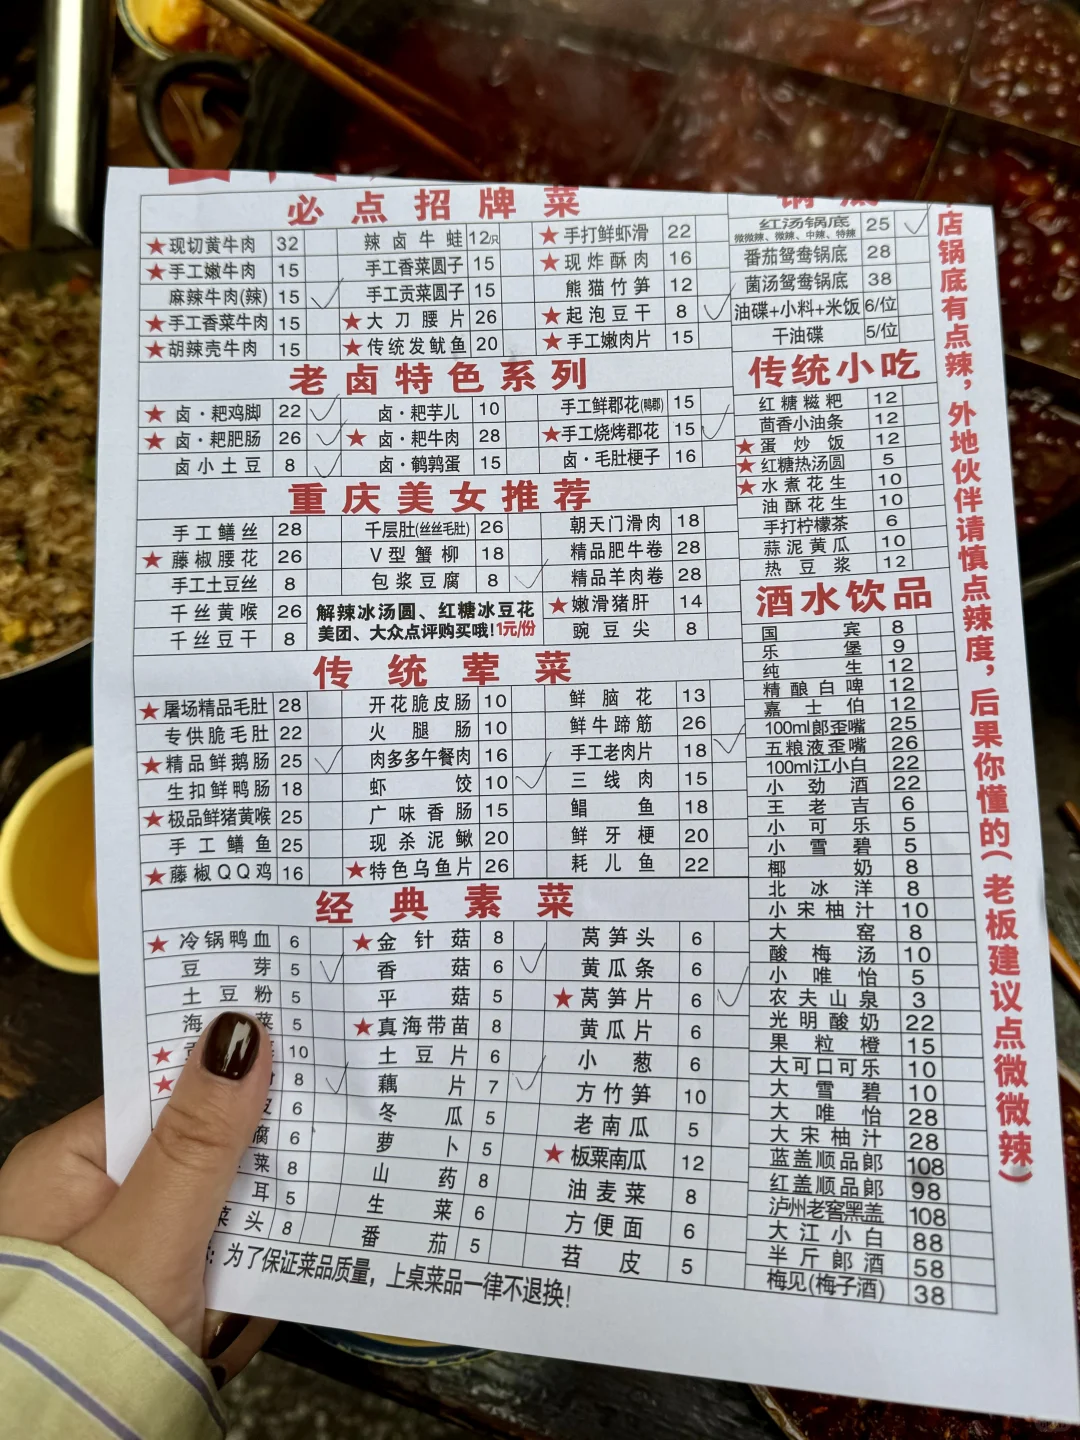 必点招牌菜
★现切黄牛肉 32 辣卤牛蛙 12/只 ★手打鲜虾滑 22
★手工嫩牛肉 15 手工香菜圆子 15 ★现炸酥肉 16
麻辣牛肉(辣) 15 手工贡菜圆子 15 熊猫竹笋 12
★手工香菜牛肉 15 ★大刀腰片 26 ★起泡豆干 8
★胡辣壳牛肉 15 ★传统发鱿鱼 20 ★手工嫩肉片 15
老卤特色系列
★卤·粑鸡脚 22 卤·粑芋儿 10 手工鲜郡花(鸭郡) 15
★卤·粑肥肠 26 ★卤·粑牛肉 28 ★手工烧烤郡花 15
卤小土豆 8 卤·鹌鹑蛋 15 卤·毛肚梗子 16
重庆美女推荐
手工鳝丝 28 千层肚(丝丝毛肚) 26 朝天门滑肉 18
★藤椒腰花 26 V型蟹柳 18 精品肥牛卷 28
手工土豆丝 8 包浆豆腐 8 精品羊肉卷 28
千丝黄喉 26 ★嫩滑猪肝 14
千丝豆干 8 豌豆尖 8
解辣冰汤圆、红糖冰豆花
美团、大众点评购买哦!1元/份
传统荤菜
★屠场精品毛肚 28 开花脆皮肠 10 鲜脑花 13
专供脆毛肚 22 火腿肠 10 鲜牛蹄筋 26
★精品鲜鹅肠 25 肉多多午餐肉 16 手工老肉片 18
生扣鲜鸭肠 18 虾饺 10 三线肉 15
★极品鲜猪黄喉 25 广味香肠 15 鲳鱼 18
手工鳝鱼 25 现杀泥鳅 20 鲜牙梗 20
★藤椒QQ鸡 16 ★特色乌鱼片 26 耗儿鱼 22
经典素菜
★冷锅鸭血 6 ★金针菇 8 莴笋头 6
豆芽 5 香菇 6 黄瓜条 6
土豆粉 5 平菇 5 ★莴笋片 6
海 菜 5 ★真海带苗 8 黄瓜片 6
★ 10 土豆片 6 小葱 6
★ 8 藕片 7 方竹笋 10
6 冬瓜 5 老南瓜 5
腐 6 萝卜 5 ★板粟南瓜 12
菜 8 山药 8 油麦菜 8
耳 5 生菜 6 方便面 6
菜头 8 番茄 5 苕皮 5
为了保证菜品质量，上桌菜品一律不退换!
红汤锅底 25
微微辣、微辣、中辣、特辣
番茄鸳鸯锅底 28
菌汤鸳鸯锅底 38
油碟+小料+米饭 6/位
干油碟 5/位
传统小吃
红糖糍粑 12
茴香小油条 12
★蛋炒饭 12
★红糖热汤圆 5
★水煮花生 10
油酥花生 10
手打柠檬茶 6
蒜泥黄瓜 10
热豆浆 12
酒水饮品
国宾 8
乐堡 9
纯生 12
精酿白啤 12
嘉士伯 12
100ml郎歪嘴 25
五粮液歪嘴 26
100ml江小白 22
小劲酒 22
王老吉 6
小可乐 5
小雪碧 5
椰奶 8
北冰洋 8
小宋柚汁 10
大窑 8
酸梅汤 10
小唯怡 5
农夫山泉 3
光明酸奶 22
果粒橙 15
大可口可乐 10
大雪碧 10
大唯怡 28
大宋柚汁 28
蓝盖顺品郎 108
红盖顺品郎 98
泸州老窖黑盖 108
大江小白 88
半斤郎酒 58
梅见(梅子酒) 38
店锅底有点辣，外地伙伴请慎点辣度，后果你懂的(老板建议点微微辣)